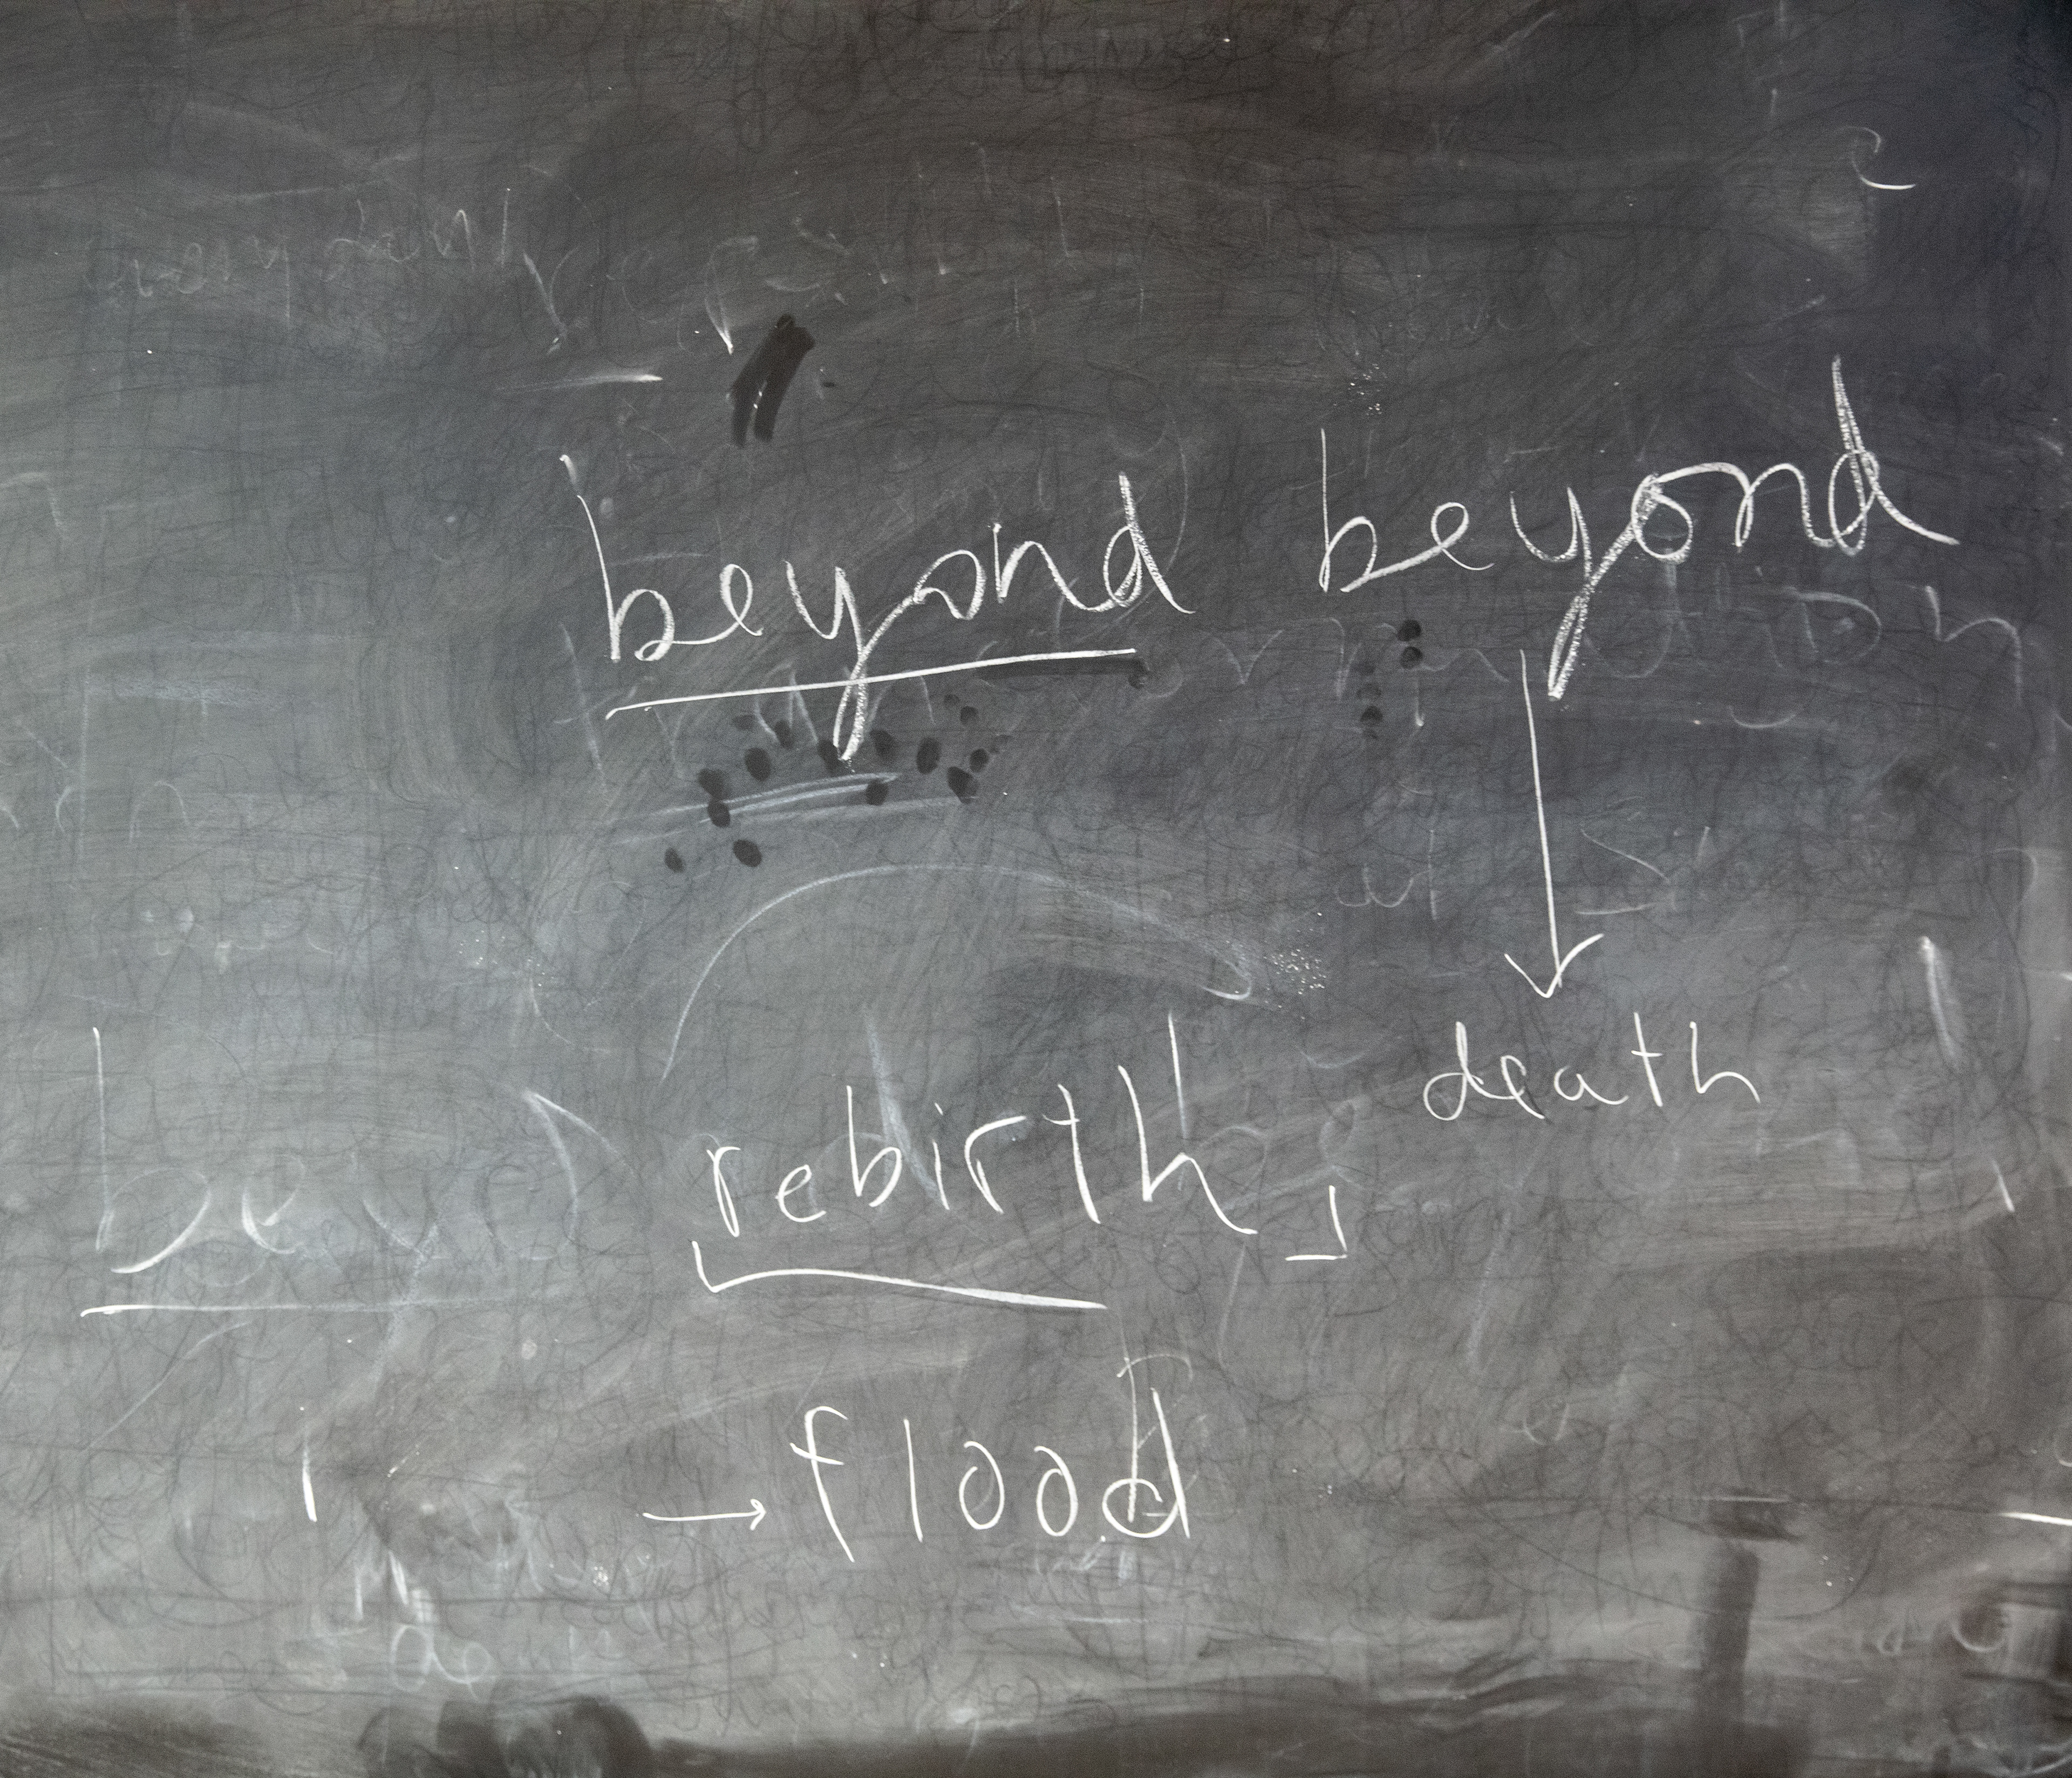 beyond beyond
death
rebirth
→ flood